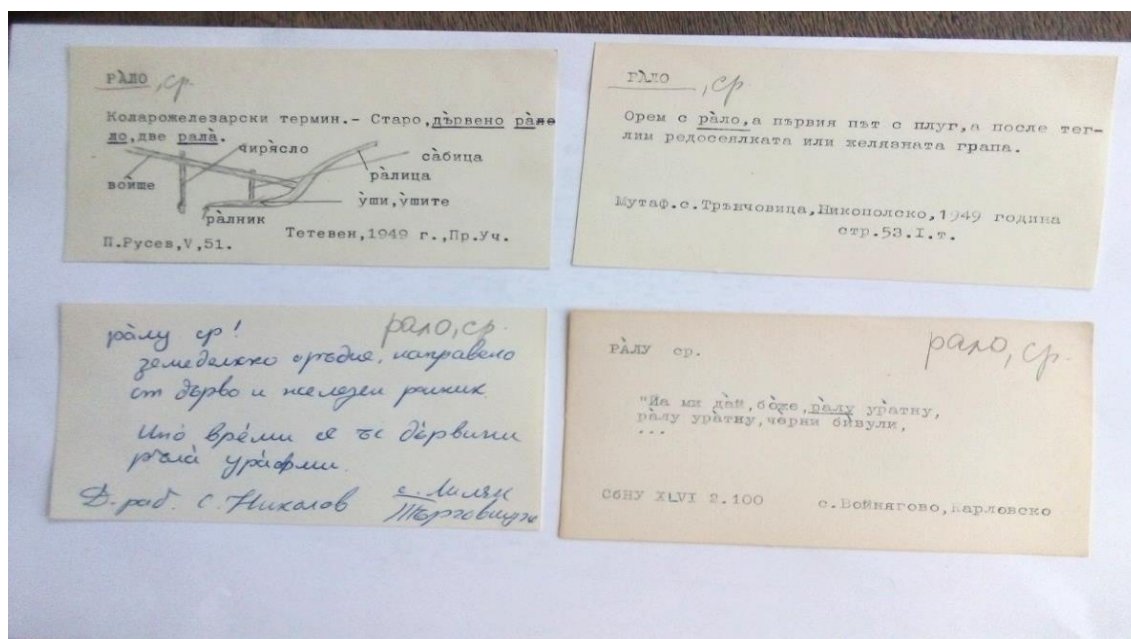 РА̀ЛО, ср.
Коларожелезарски термин.- Старо, дървено ра̀-
ло, две рала̀.
чиря̀сло
са̀бица
во̀йще
ра̀лица
у̀ши, у̀шите
ра̀лник
Тетевен, 1949 г., Пр.Уч.
П.Русев, V, 51.
РА̀ЛО, ср
Орем с ра̀ло, а първия път с плуг, а после тег-
лим редосеялката или желязната грапа.
Мутаф. с. Трънчовица, Никополско, 1949 година
стр.53.I.т.
ра̀лу ср! рало, ср.
земеделско оръдие, направено
от дърво и железен
врѐми съ дървини
рала̀
Д. раб. С. Николов с. Лиляк
Търговищко
РА̀ЛУ ср. рало, ср.
"Йа ми да̀й, бо̀же, ра̀лу ура̀тну,
ра̀лу ура̀тну, чѐрни бѝвули,
...
СбНУ XLVI 2.100 с. Войнягово, Карловско